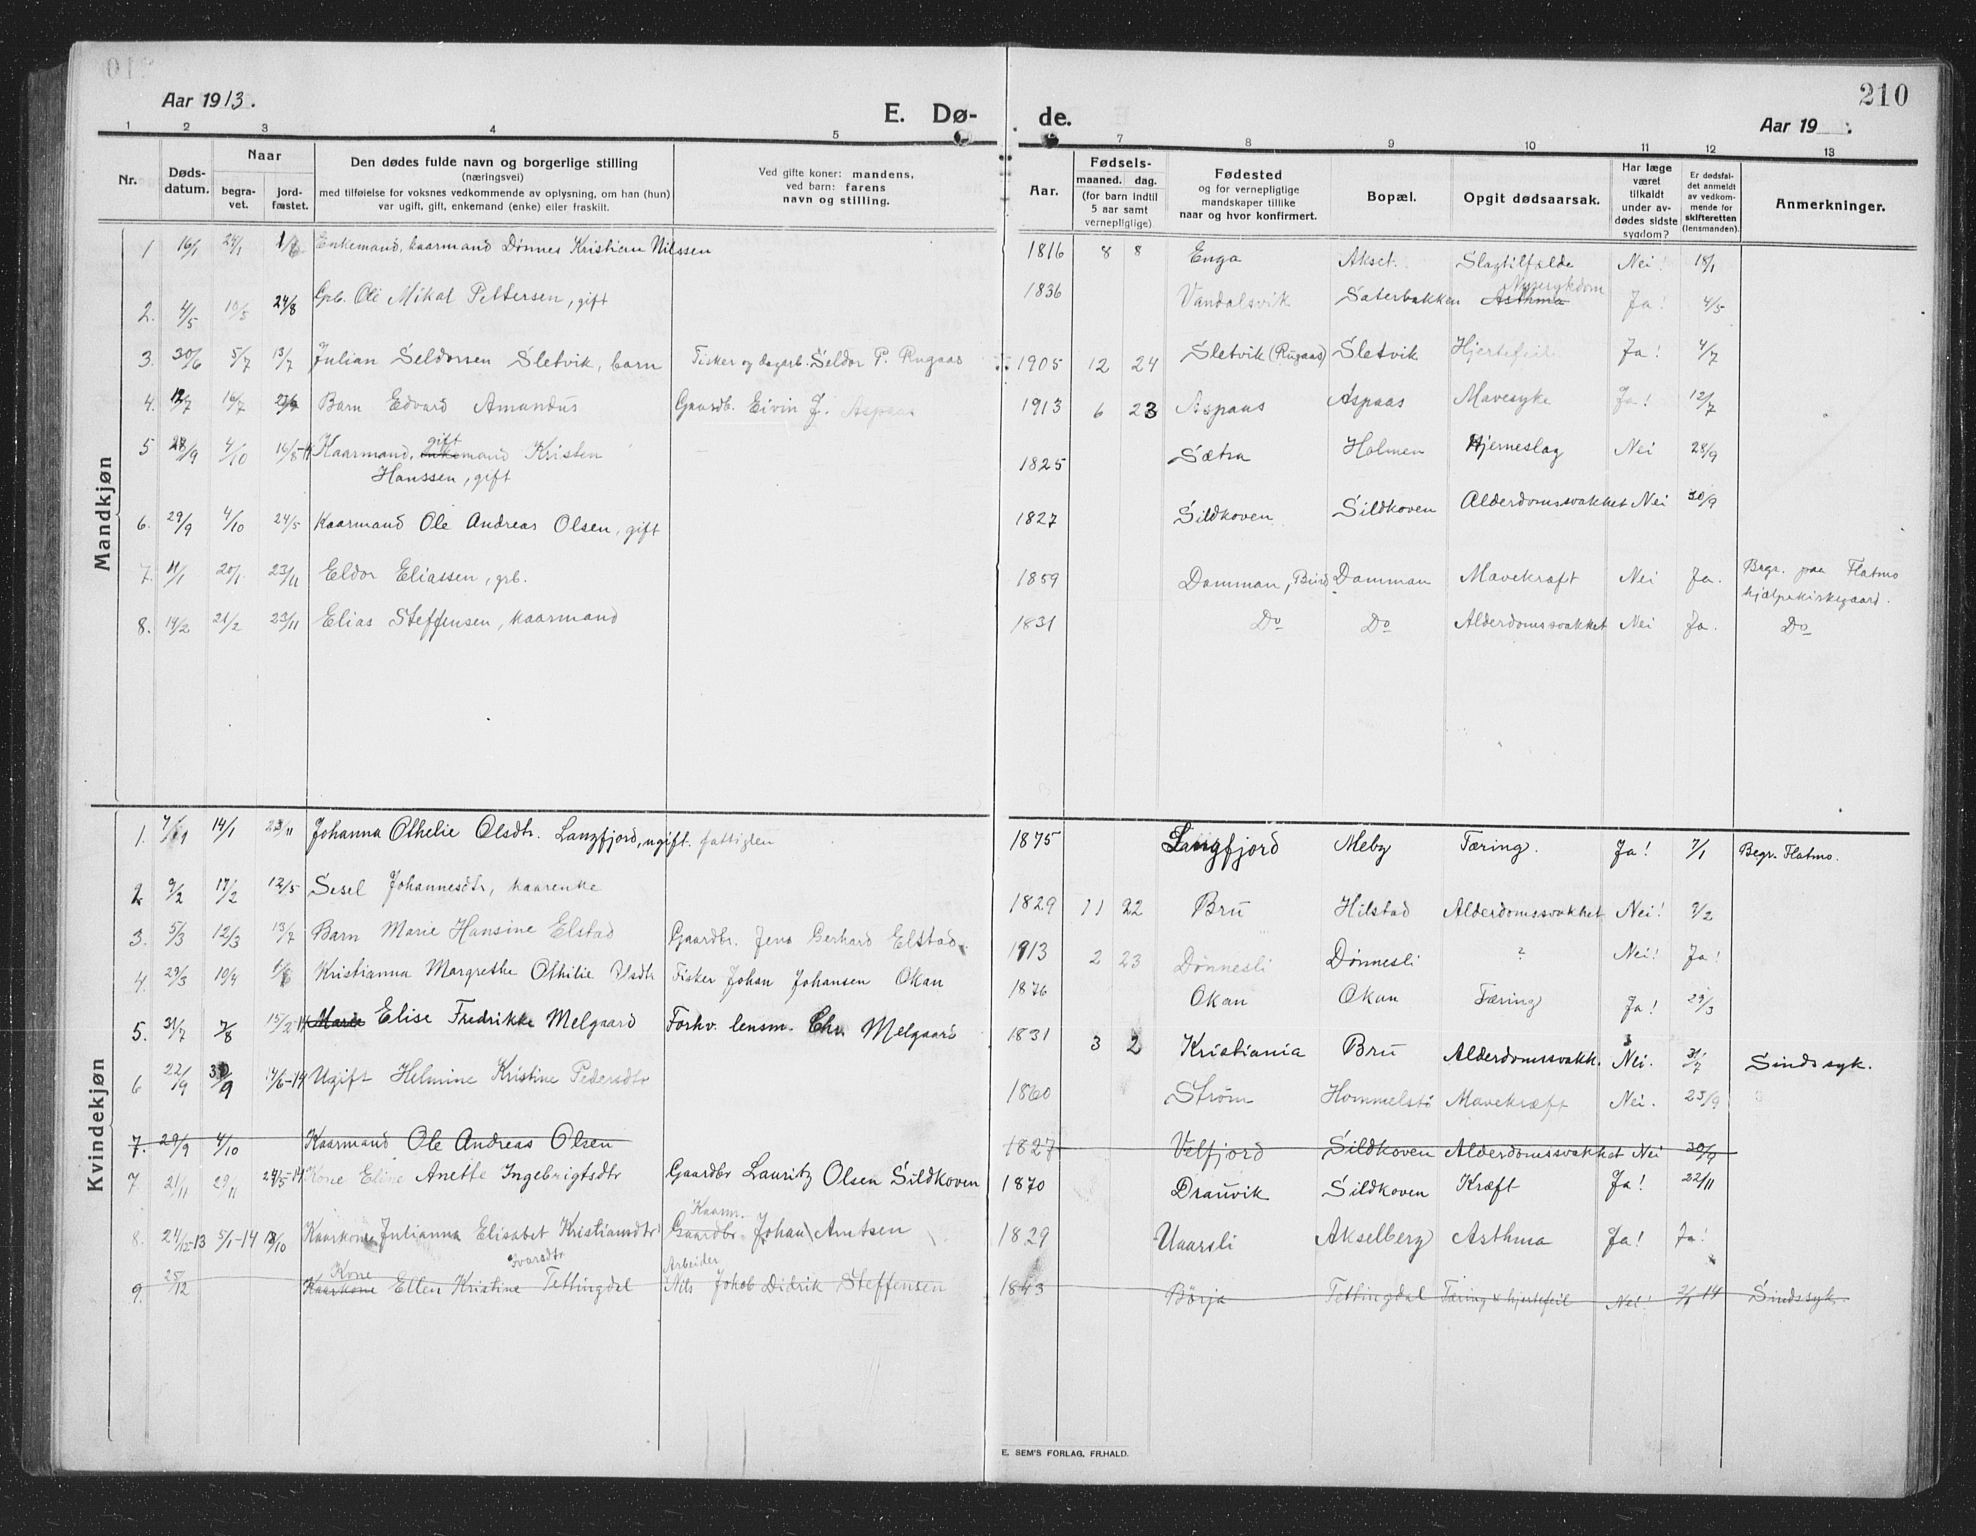 210
Aar 1913.
E. Dø-
de.
Aar 19 .
1 2 3 4 5 7 8 9 10 11 12 13
Nr.
Døds-
datum.
Naar
begra-
vet.
jord-
fæstet.
Den dødes fulde navn og borgerlige stilling
(næringsvei)
med tilføielse for voksnes vedkommende av oplysning, om han (hun)
var ugift, gift, enkemand (enke) eller fraskilt.
Ved gifte koner: mandens,
ved barn: farens
navn og stilling.
Aar.
Fødsels-
maaned. dag.
(for barn indtil
5 aar samt
vernepligtige)
Fødested
og for vernepligtige
mandskaper tillike
naar og hvor konfirmert.
Bopæl.
Opgit dødsaarsak.
Har læge
været
tilkaldt
under av-
dødes sidste
sygdom?
Er dødsfal-
det anmeldt
av vedkom-
mende for
skifteretten
(lensmanden).
Anmerkninger.
Mandkjøn
1 16/1 24/1 1/6 Enkemand, kaarmand Dønnes Kristian Nilssen 1816 8 8 Enga Akset. Slagtilfælde Nei! 18/1
2. 4/5 10/5 24/8 Grb. Ole Mikal Pettersen, gift 1836 Vandalsvik Sæterbakken Asthma Nyresykdom Ja! 4/5
3. 30/6 5/7 13/7 Julian Seldorsen Sletvik, barn Fisker og dagarb. Seldor P. Rugaas 1905 12 24 Sletvik (Rugaas) Sletvik Hjertefeil Ja! 4/7
4. 12/7 16/7 Barn Edvard Amandus Gaardb. Eivin J. Aspaas 1913 6 23 Aspaas Aspaas Mavesyke Ja! 12/7
5 28/9 4/10 16/5-14 Kaarmand, gift enkemand Kristen
Hanssen, gift 1825 Sætra Holmen Hjerneslag Nei 28/9
6. 29/9 4/10 24/5 Kaarmand Ole Andreas Olsen, gift 1827 Sildkoven Sildkoven Alderdomssvakhet Nei 30/9
7. 11/1 20/1 23/11 Eldor Eliassen, grb. 1859 Damman, Bind Damman Mavekræft Nei Ja. Begr. paa Flatmo
hjælpekirkegaard.
8. 14/2 21/2 23/11 Elias Steffensen, kaarmand 1831 Do Do Alderdomssvakhet Nei Ja. Do
Kvindekjøn
1. 7/1 14/1 23/11 Johanna Othelie Olsdtr. Langfjord, ugift. fattiglem 1875 Langfjord Meby Tæring. Ja! 7/1 Begr. Flatmo.
2. 9/2 17/2 12/5 Sesel Johannesdtr, kaarenke 1829 11 22 Bru Hilstad Alderdomssvakhet Nei! 9/2
3. 5/3 12/3 13/7 Barn Marie Hansine Elstad Gaardbr. Jens Gerhard Elstad. 1913 2 23 Dønnesli Dønnesli ? Nei! Ja!
4. 29/3 10/4 1/6 Kristianna Margrethe Othilie Olsdtr Fisker Johan Johansen Okan 1876 Okan Okan Tæring Ja! 29/3
5. 31/7 7/8 15/2-14 Marie Elise Fredrikke Melgaard Forhv. lensm. Chr. Melgaard 1831 3 2 Kristiania Bru Alderdomssvakk. Nei. 31/7 Sindssyk.
6 22/9 30/9 14/6-14 Ugift Helmine Kristine Pedersdtr 1860 Strøm Hommelstø Mavekræft Nei. 23/9
7. 29/9 4/10 Kaarmand Ole Andreas Olsen 1827 Velfjord Sildkoven Alderdomssvakhet Nei 30/9
7 21/11 29/11 24/5-14 Kone Eline Anette Ingebrigtsdtr Gaardbr Lauritz Olsen Sildkoven 1870 Drauvik Sildkoven Kræft Ja! 22/11
8. 24/12-13 5/1-14 18/10 Kaarkone Julianna Elisabet Kristiansdtr Kaarm. Gaardbr Johan Arntsen 1829 Uaarsli Akselberg Asthma Ja! Ja!
9. 25/12 Kone Kaarkone Ellen Kristine Ivarsdtr Tettingdal Arbeider Nils Jakob Didrik Steffensen 1843 Børja Tettingdal Tæring & hjertefeil Nei! 2/1 14 Sindssyk.
E. SEM'S FORLAG, FR.HALD.